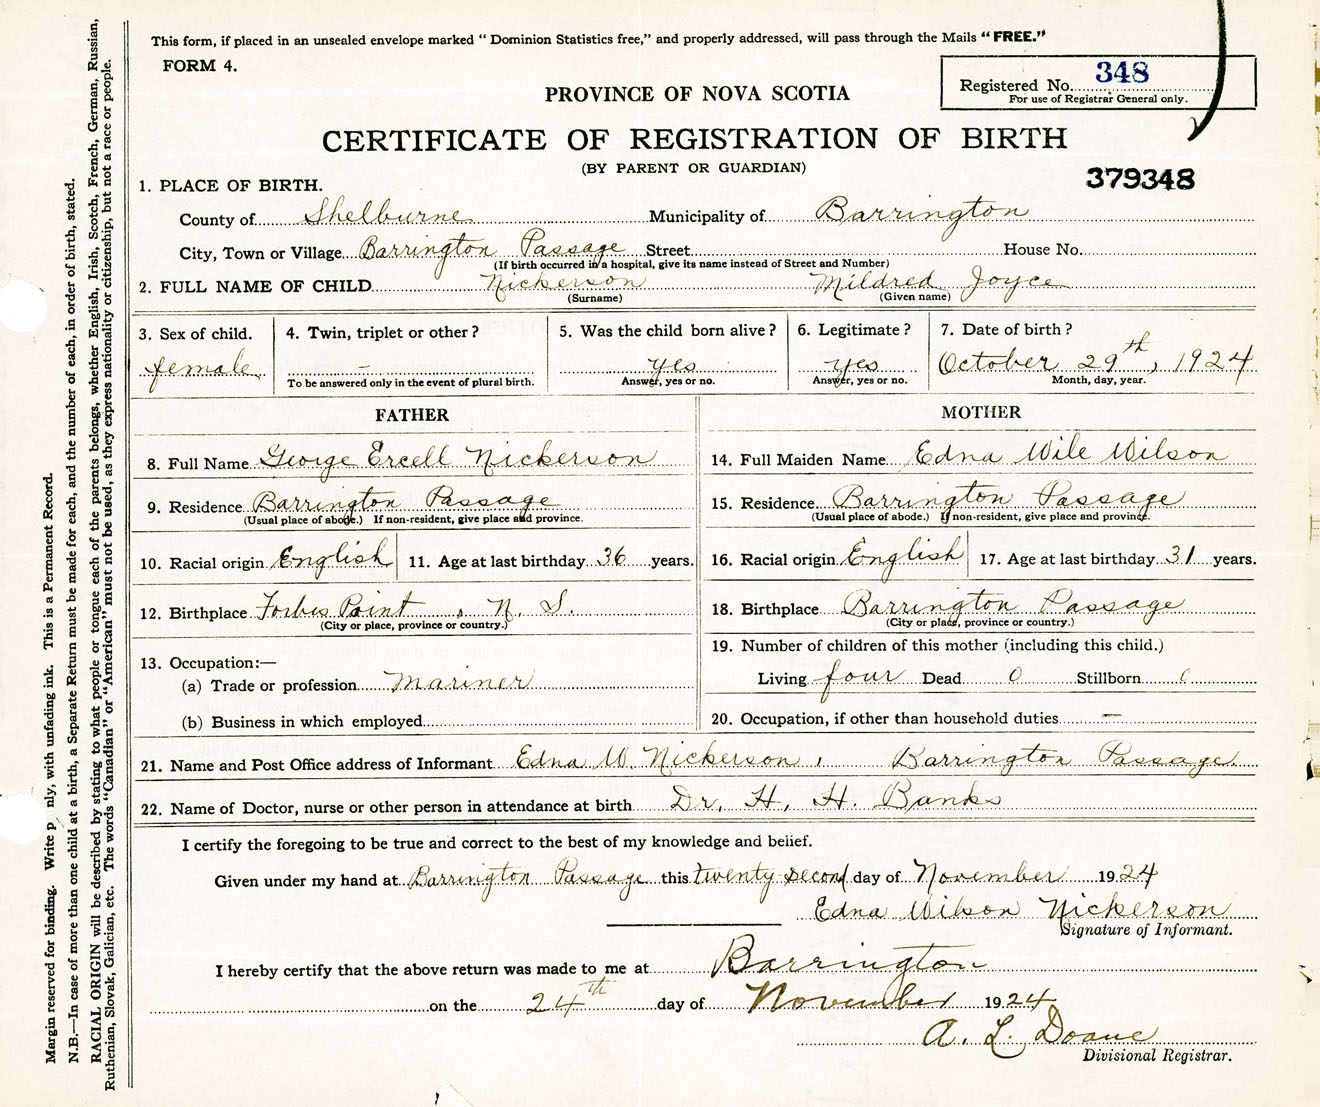 This form, if placed in an unsealed envelope marked “ Dominion Statistics free,” and properly addressed, will pass through the Mails “ FREE.”
FORM 4.
Registered No. 348
For use of Registrar General only.
PROVINCE OF NOVA SCOTIA
CERTIFICATE OF REGISTRATION OF BIRTH
(BY PARENT OR GUARDIAN)
379348
1. PLACE OF BIRTH.
County of Shelburne Municipality of Barrington
City, Town or Village Barrington Passage Street House No.
(If birth occurred in a hospital, give its name instead of Street and Number)
2. FULL NAME OF CHILD Nickerson Mildred Joyce
(Surname) (Given name)
3. Sex of child. 4. Twin, triplet or other? 5. Was the child born alive? 6. Legitimate? 7. Date of birth?
female - yes yes October 29th, 1924
To be answered only in the event of plural birth. Answer, yes or no. Answer, yes or no. Month, day, year.
FATHER MOTHER
8. Full Name George Ercell Nickerson 14. Full Maiden Name Edna Wile Wilson
9. Residence Barrington Passage 15. Residence Barrington Passage
(Usual place of abode.) If non-resident, give place and province. (Usual place of abode.) If non-resident, give place and province.
10. Racial origin English 11. Age at last birthday 36 years. 16. Racial origin English 17. Age at last birthday 31 years.
12. Birthplace Forbes Point, N. S. 18. Birthplace Barrington Passage
(City or place, province or country.) (City or place, province or country.)
13. Occupation:— 19. Number of children of this mother (including this child.)
(a) Trade or profession mariner Living four Dead 0 Stillborn 0
(b) Business in which employed 20. Occupation, if other than household duties —
21. Name and Post Office address of Informant Edna W. Nickerson, Barrington Passage.
22. Name of Doctor, nurse or other person in attendance at birth Dr. H. H. Banks
I certify the foregoing to be true and correct to the best of my knowledge and belief.
Given under my hand at Barrington Passage this twenty second day of November 1924
Edna Wilson Nickerson
Signature of Informant.
I hereby certify that the above return was made to me at Barrington
on the 24th day of November 1924
A. L. Doane
Divisional Registrar.
Margin reserved for binding. Write p nly, with unfading ink. This is a Permanent Record.
N.B.—In case of more than one child at a birth, a Separate Return must be made for each, and the number of each, in order of birth, stated.
RACIAL ORIGIN will be described by stating to what people or tongue each of the parents belongs, whether English, Irish, Scotch, French, German, Russian,
Ruthenian, Slovak, Galician, etc. The words “Canadian” or “American” must not be used, as they express nationality or citizenship, but not a race or people.